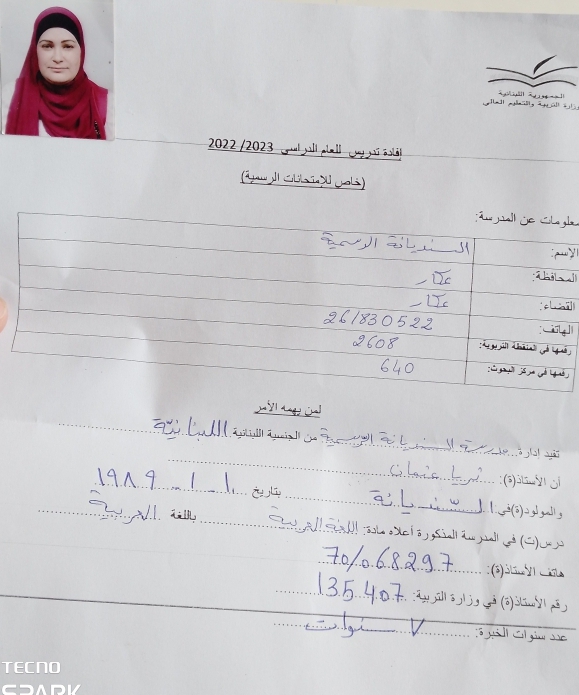 الجمهورية اللبنانية
وزارة التربية والتعليم العالي
إفادة تدريس للعام الدراسي 2022/2023
(خاص للإمتحانات الرسمية)
معلومات عن المدرسة:
الإسم: السنديانة الرسمية
المحافظة: عكار
القضاء: عكار
الهاتف: 26/830522
رقمها في المنطقة التربوية: 2608
رقمها في مركز البحوث: 640
لمن يهمه الأمر
تفيد إدارة مدرسة السنديانة الرسمية من الجنسية اللبنانية اللبنانيّة
أن الأستاذ(ة): ثريا عثمان
والمولود(ة)في السّنديانة بتاريخ ١٩٨٩-١-١٠
درس(ت) في المدرسة المذكورة أعلاه مادة: اللغة العربية باللغة العربية
هاتف الأستاذ(ة): 70/068297
رقم الأستاذ(ة) في وزارة التربية: 135407
عدد سنوات الخبرة: ٧ سنوات
TECNO
SPARK